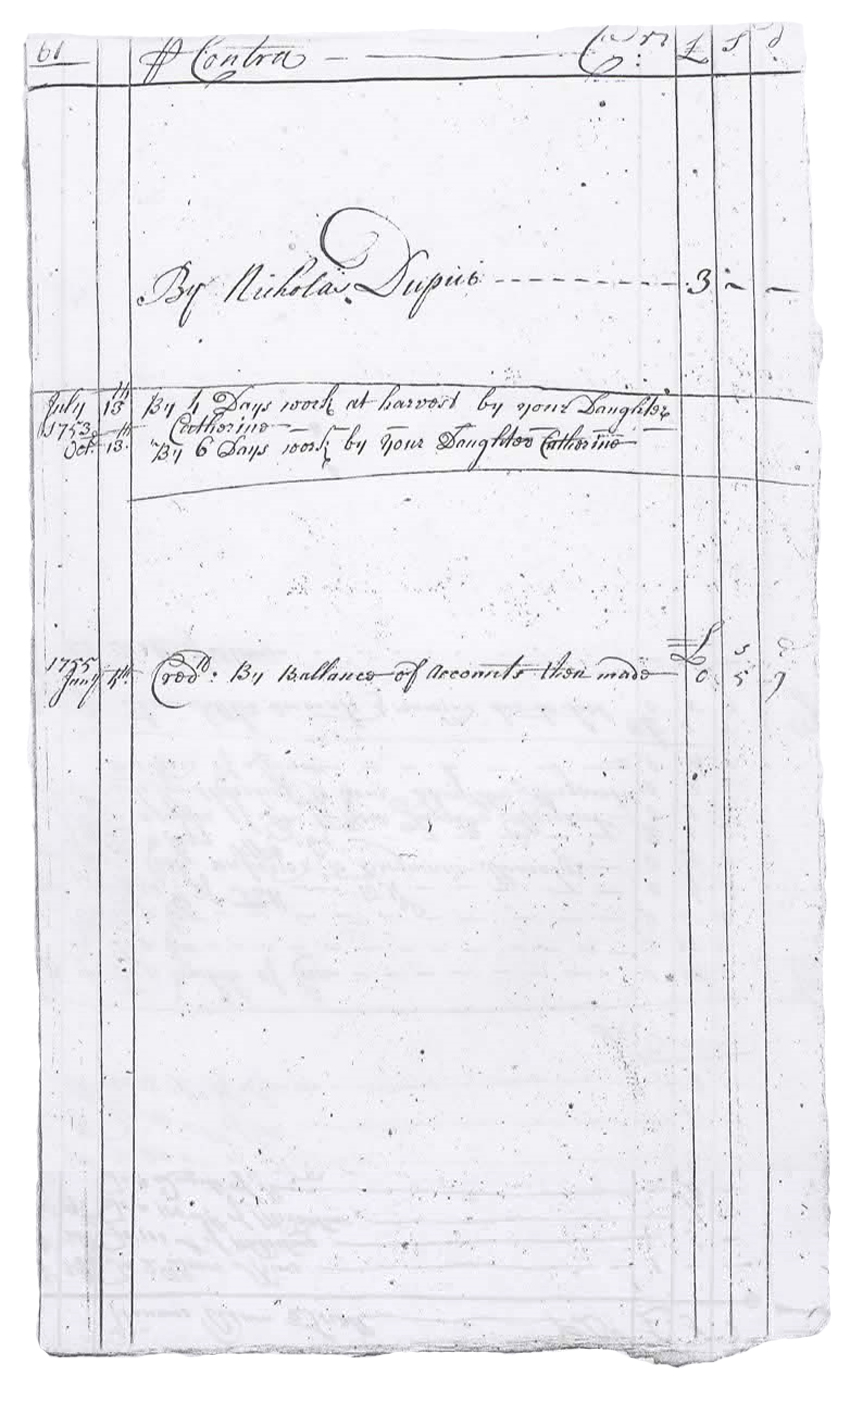 61 Contra Cr: £ S d
By Nicholas Dupui 3 - -
July 13th By 4 Days work at harvest by your Daughter
1753 Catherine
Oct. 13th By 6 Days work by your Daughter Catherine
£ s d
1755
Jany 4th Cred: By Ballance of Accounts then made 0 5 7